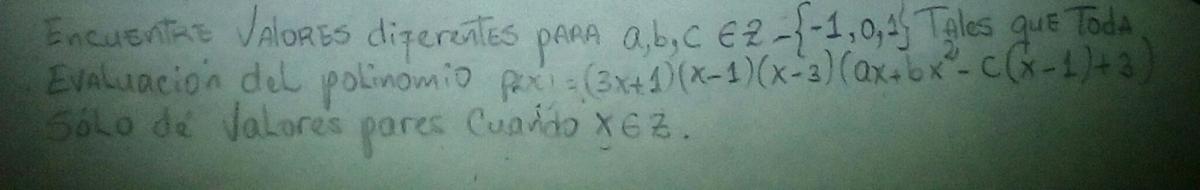 ENCUENTRE VALORES diferentes PARA a,b,c ∈ Z - {-1,0,1} Tales que Toda
Evaluación del polinomio p(x) = (3x+1)(x-1)(x-3)(ax+bx²-c(x-1)+3)
Sólo dé Valores pares Cuando X ∈ Z.